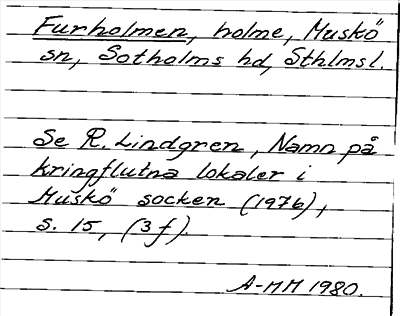 Furholmen, holme, Muskö
sn, Sotholms hd, Sthlmsl.
Se R. Lindgren, Namn på
kringflutna lokaler i
Muskö socken (1976),
s. 15, (3f).
A-MM 1980.